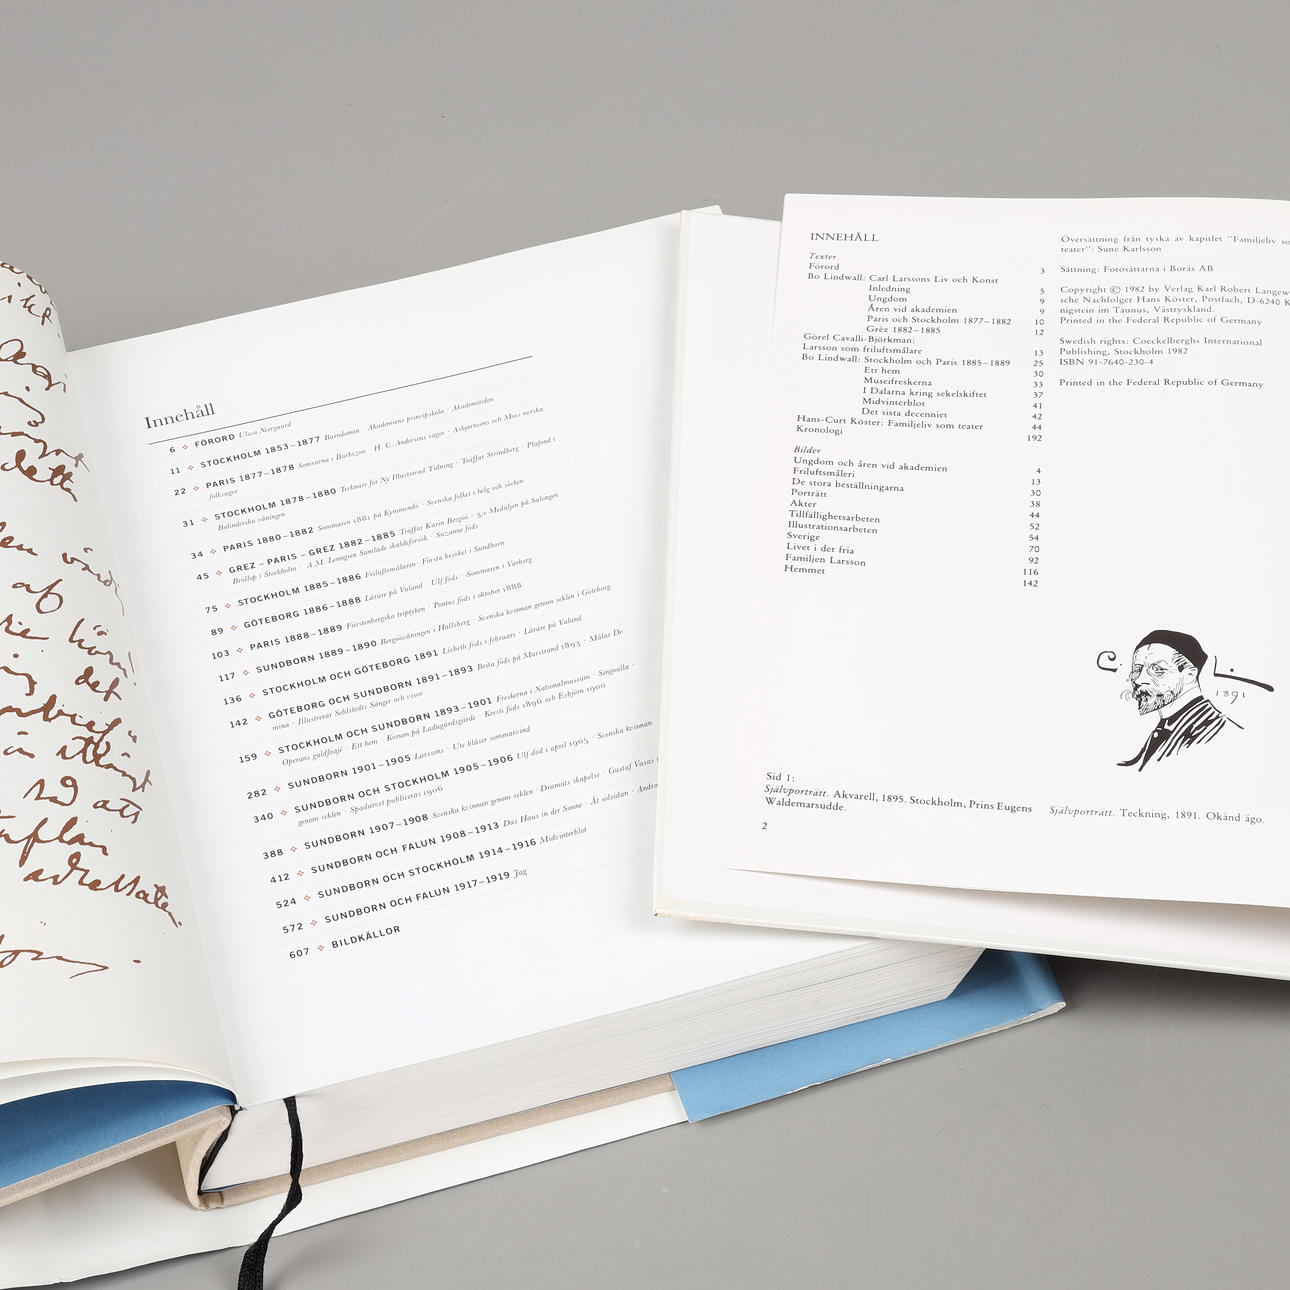 Innehåll
6 FÖRORD Ulwa Neergaard
11 STOCKHOLM 1853–1877 Barndomen · Akademiens principskola · Akademitiden
22 PARIS 1877–1878 Somrarna i Barbizon · H. C. Andersens sagor · Asbjørnsens och Moes norska
folksagor
31 STOCKHOLM 1878–1880 Tecknare för Ny Illustrerad Tidning · Träffar Strindberg · Plafond i
Bolinderska våningen
34 PARIS 1880–1882 Sommaren 1881 på Kymmendö · Svenska folket i helg och söcken
45 GREZ – PARIS – GREZ 1882–1885 Träffar Karin Bergöö · 3:e Medaljen på Salongen ·
Bröllop i Stockholm · A.M. Lenngren Samlade skaldeförsök · Suzanne föds
75 STOCKHOLM 1885–1886 Friluftsmålaren · Första besöket i Sundborn
89 GÖTEBORG 1886–1888 Lärare på Valand · Ulf föds · Sommaren i Varberg
103 PARIS 1888–1889 Fürstenbergska triptyken · Pontus föds i oktober 1888
117 SUNDBORN 1889–1890 Bergöövåningen i Hallsberg · Svenska kvinnan genom seklen i Göteborg
136 STOCKHOLM OCH GÖTEBORG 1891 Lisbeth föds i februari · Lärare på Valand
142 GÖTEBORG OCH SUNDBORN 1891–1893 Brita föds på Marstrand 1893 · Målar De
mina · Illustrerar Sehlstedts Sånger och visor
159 STOCKHOLM OCH SUNDBORN 1893–1901 Freskerna i Nationalmuseum · Singoalla ·
Operans guldfoajé · Ett hem · Korum på Ladugårdsgärde · Kersti föds 1896 och Esbjörn 1900
282 SUNDBORN 1901–1905 Larssons · Ute blåser sommarvind
340 SUNDBORN OCH STOCKHOLM 1905–1906 Ulf död i april 1905 · Svenska kvinnan
genom seklen · Spadarvet publiceras 1906
388 SUNDBORN 1907–1908 Svenska kvinnan genom seklen · Dramats skapelse · Gustaf Vasas
412 SUNDBORN OCH FALUN 1908–1913 Das Haus in der Sonne · Åt solsidan ·
524 SUNDBORN OCH STOCKHOLM 1914–1916 Midvinterblot
572 SUNDBORN OCH FALUN 1917–1919 Jag
607 BILDKÄLLOR
INNEHÅLL
Texter
Förord 3
Bo Lindwall: Carl Larssons Liv och Konst
Inledning 5
Ungdom 9
Åren vid akademien 9
Paris och Stockholm 1877–1882 10
Grèz 1882–1885 12
Görel Cavalli-Björkman:
Larsson som friluftsmålare 13
Bo Lindwall: Stockholm och Paris 1885–1889 25
Ett hem 30
Museifreskerna 33
I Dalarna kring sekelskiftet 37
Midvinterblot 41
Det sista decenniet 42
Hans-Curt Köster: Familjeliv som teater 44
Kronologi 192
Bilder
Ungdom och åren vid akademien 4
Friluftsmåleri 13
De stora beställningarna 30
Porträtt 38
Akter 44
Tillfällighetsarbeten 52
Illustrationsarbeten 54
Sverige 70
Livet i det fria 92
Familjen Larsson 116
Hemmet 142
Översättning från tyska av kapitlet "Familjeliv
teater": Sune Karlsson
Sättning: Fotosättarna i Borås AB
Copyright © 1982 by Verlag Karl Robert
sche Nachfolger Hans Köster, Postfach, D-6240
nigstein im Taunus, Västtyskland.
Printed in the Federal Republic of Germany
Swedish rights: Coeckelberghs International
Publishing, Stockholm 1982
ISBN 91-7640-230-4
Printed in the Federal Republic of Germany
C. L.
1891
Sid 1:
Självporträtt. Akvarell, 1895. Stockholm, Prins Eugens
Waldemarsudde.
Självporträtt. Teckning, 1891. Okänd ägo.
2
af
det
att
adressaten.